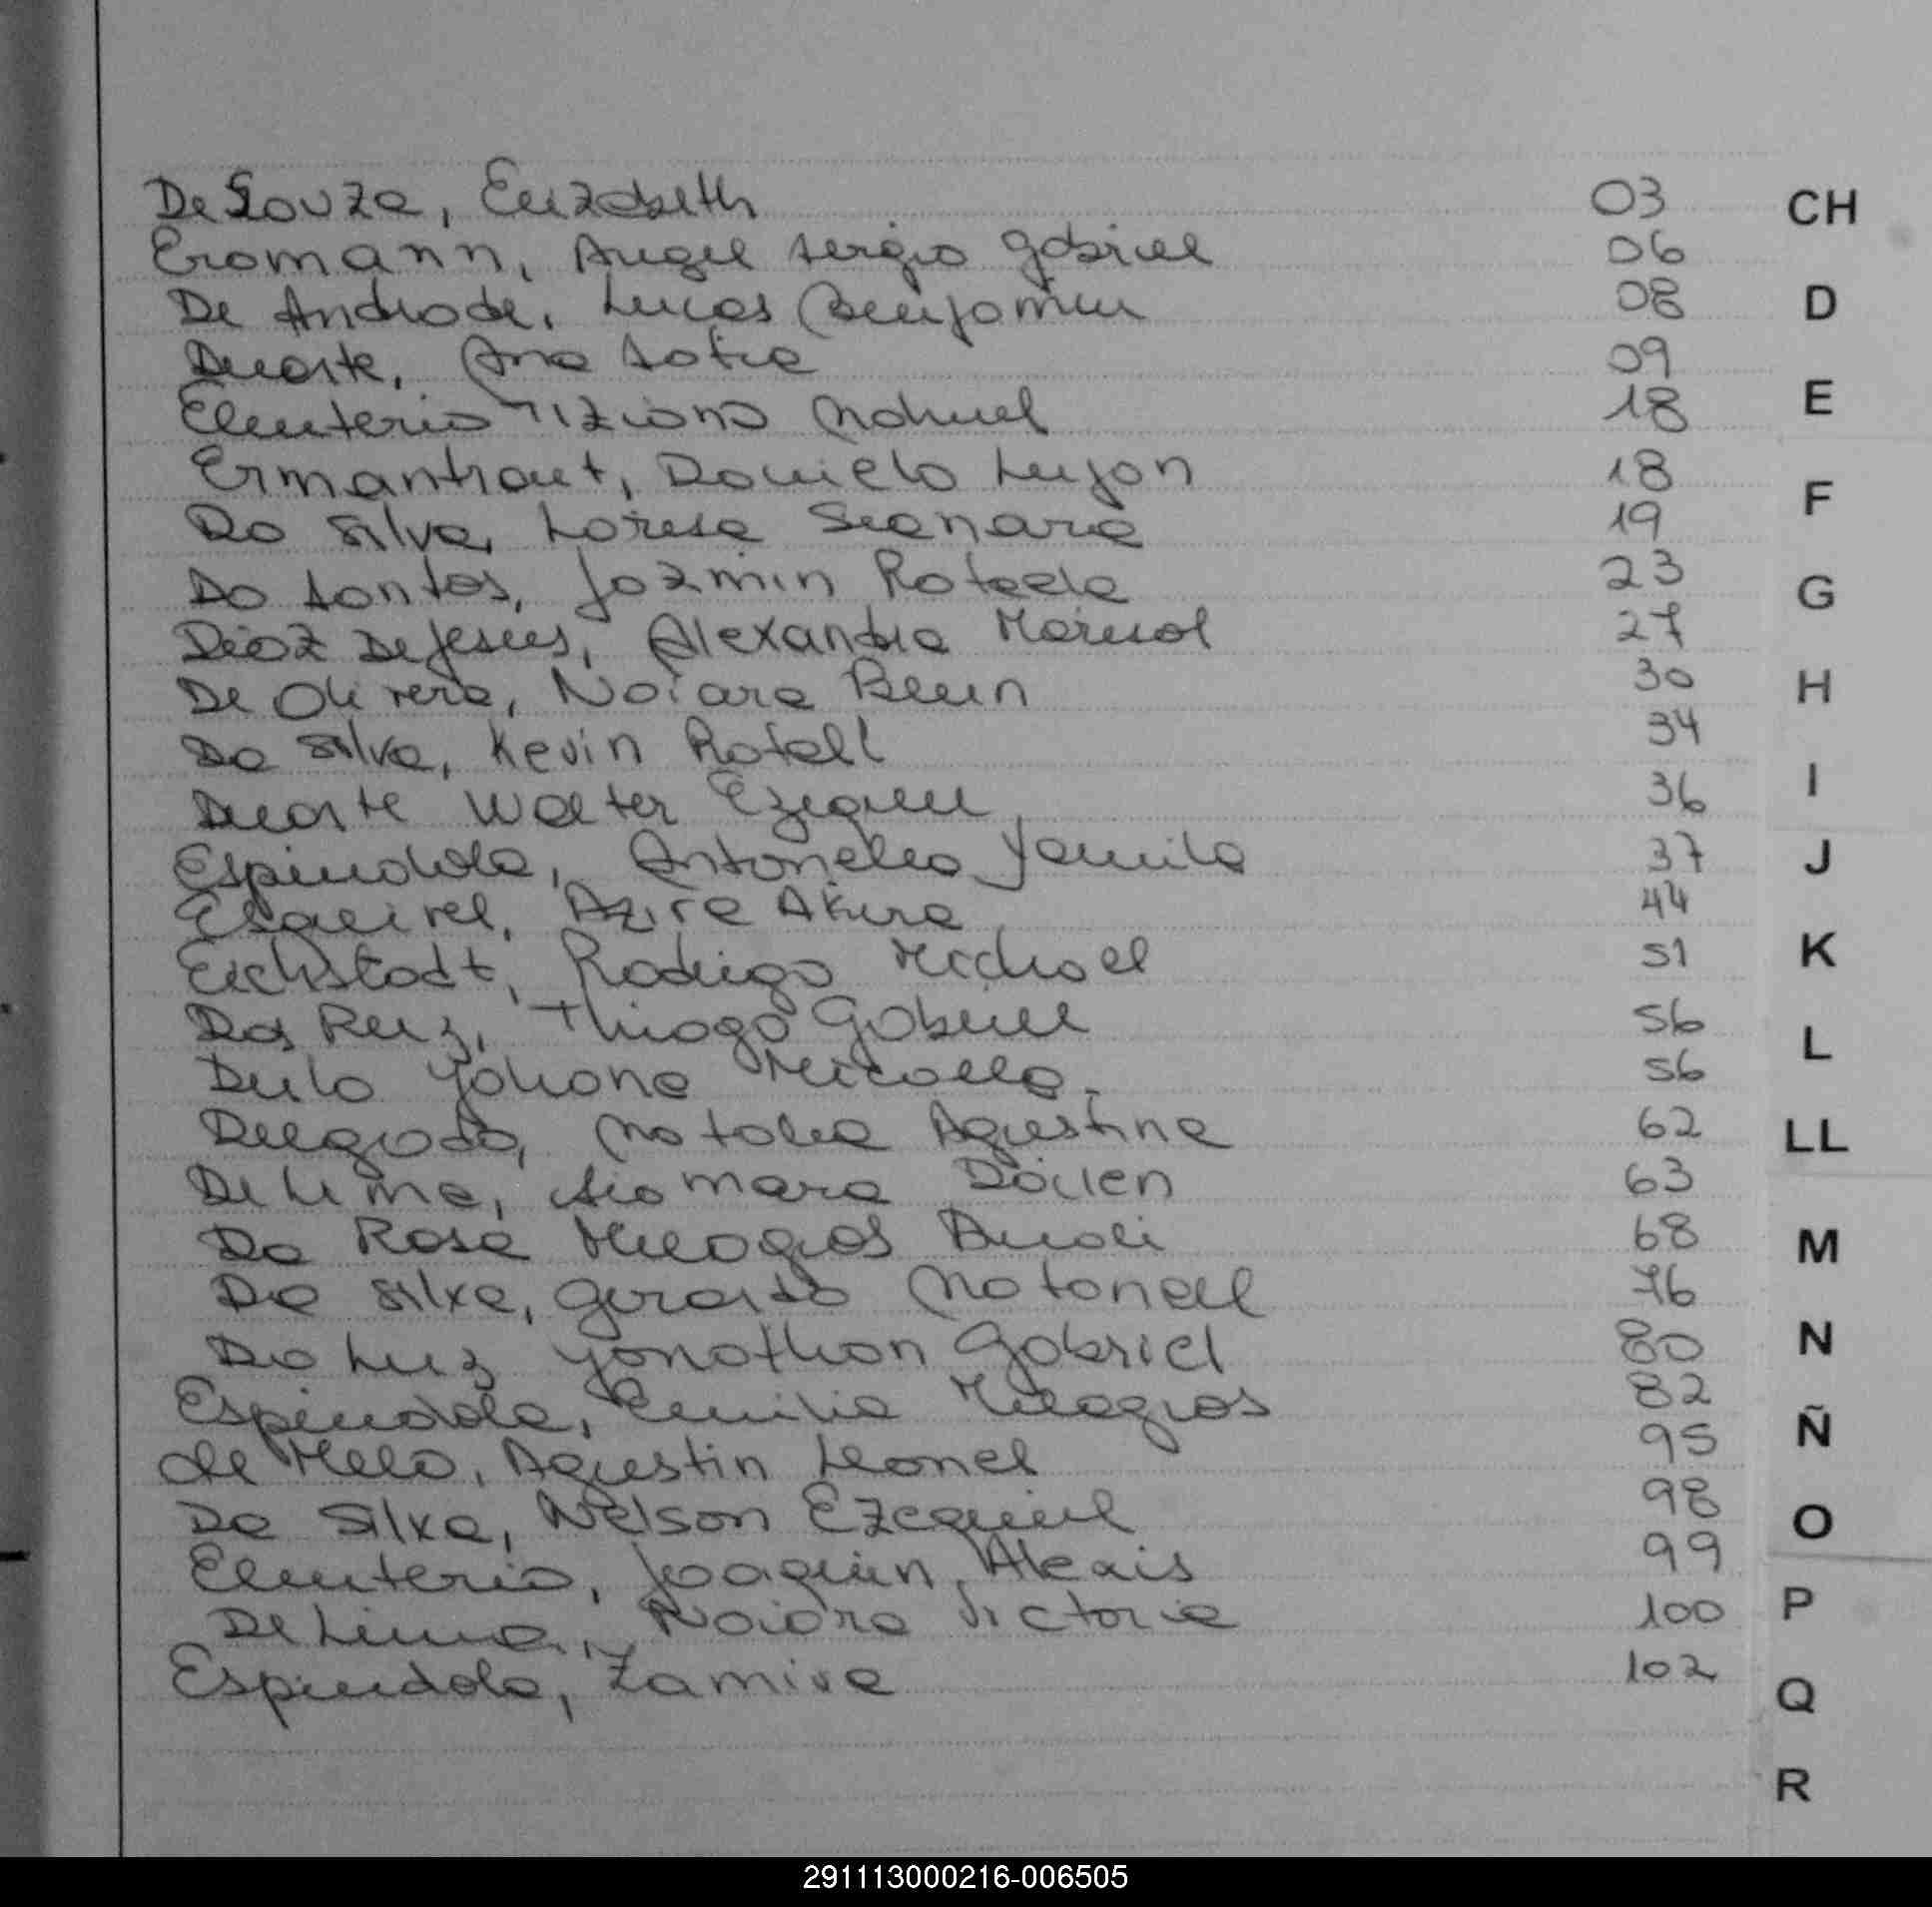 De Souza, Elizabeth 03 CH
Eromann, Angel Sergio Gabriel 06
De Andrade, Lucas Benjamin 08 D
Duarte, Ana Sofia 09
Eleuterio Tiziano Nahuel 18 E
Ermantraut, Daniela Lujan 18 F
Da Silva, Lorena 19
Do Santos, Jazmin Rafaela 23 G
Diaz De Jesus, Alexandra Marisol 27
De Olivera, Naiara Belen 30 H
Da Silva, Kevin Rafael 34
Duarte Walter Ezequiel 36 I
Espindola, Antonella Yamila 37 J
Esquivel, Akira 44
Eichstadt, Rodrigo Michael 51 K
Das Ruiz, Thiago Gabriel 56 L
Yohana 56
Delgado, Natalia Agustina 62 LL
De Lima, Xiomara 63
Da Rosa Milagros 68 M
Da Silva, Gerardo Natanael 76
Da Luz Yonathan Gabriel 80 N
Espindola, Emilia Milagros 82
de Melo, Agustin Leonel 95 Ñ
Da Silva, Nelson Ezequiel 98 O
Eleuterio, Joaquin Alexis 99
De Lima, Naiara Victoria 100 P
Espindola, Zamira 102 Q
R
291113000216-006505